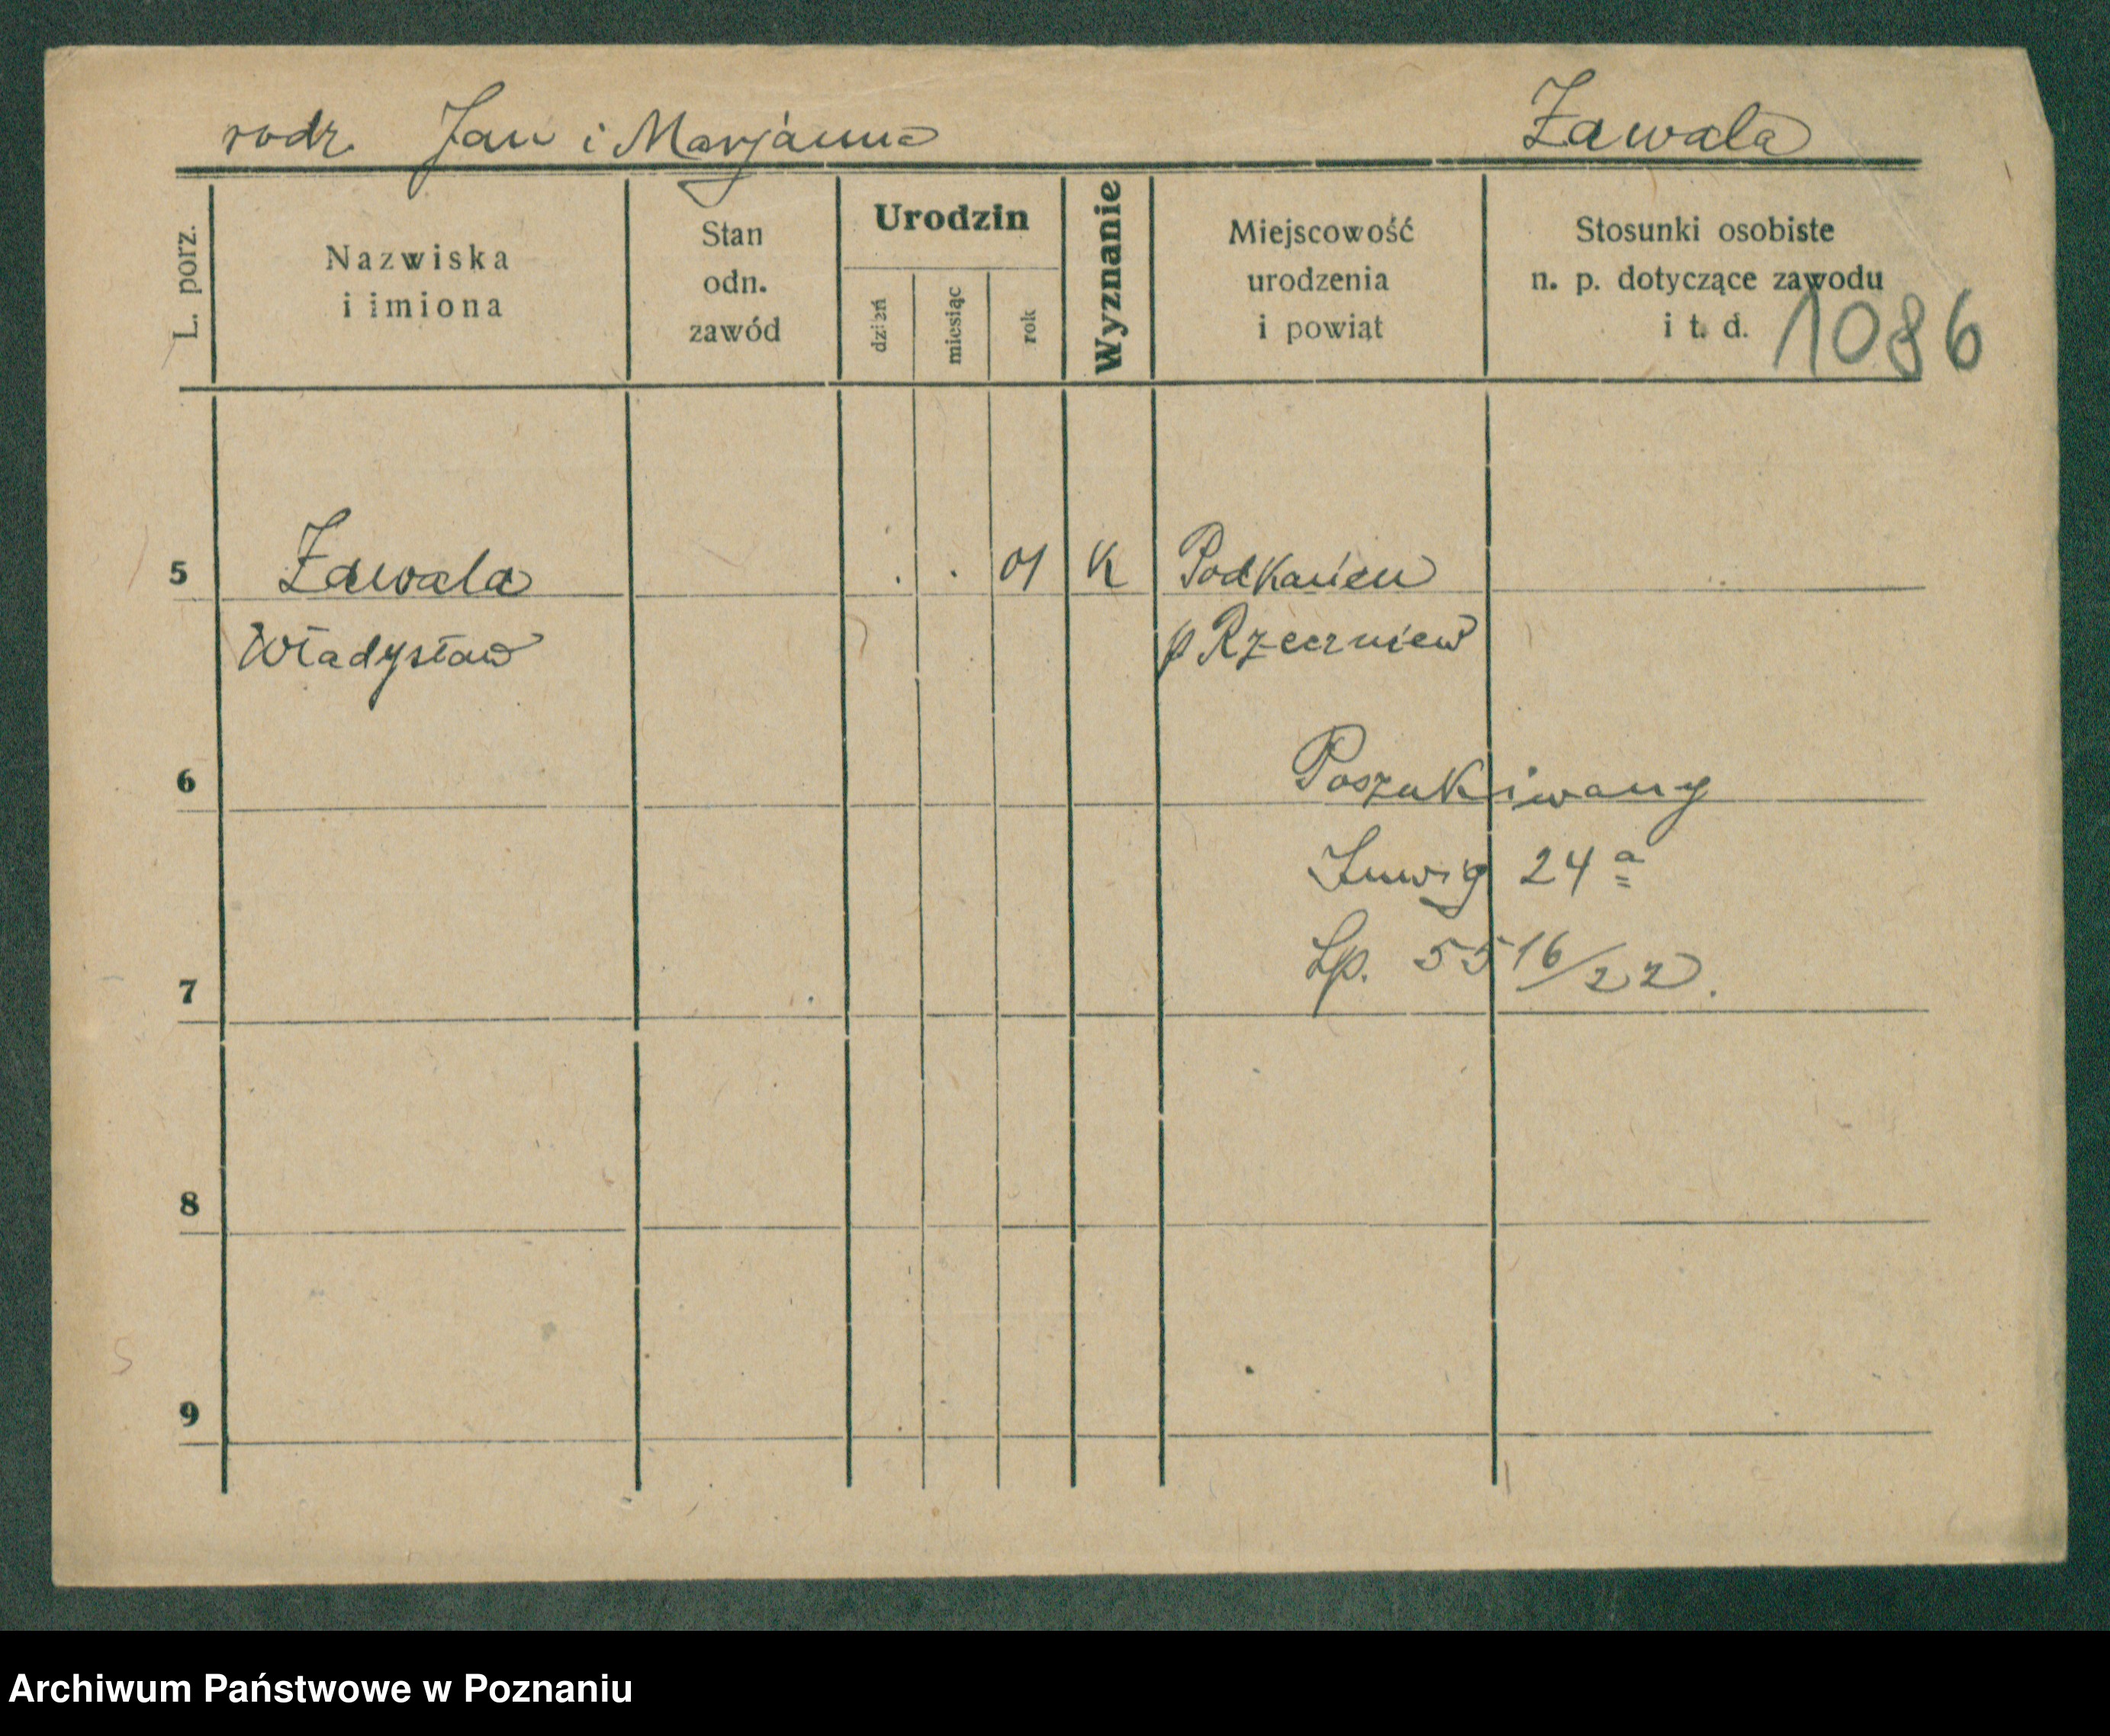 rodz. Jan i Marjanna Zawala
L. porz.
Nazwiska
i imiona
Stan
odn.
zawód
Urodzin
dzień
miesiąc
rok
Wyznanie
Miejscowość
urodzenia
i powiat
Stosunki osobiste
n. p. dotyczące zawodu
i t. d.
1086
5 Zawala . . 01 K Podkanien
Władysław p Rzeczniew
6 Poszukiwany
24 a
Lp. 5516/22.
7
8
9
Archiwum Państwowe w Poznaniu